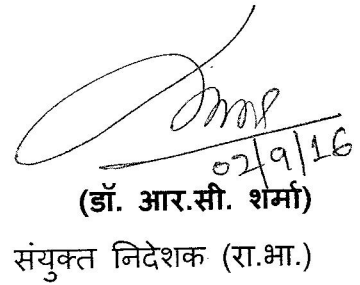 02/9/16
(डॉ. आर.सी. शर्मा)
संयुक्त निदेशक (रा.भा.)